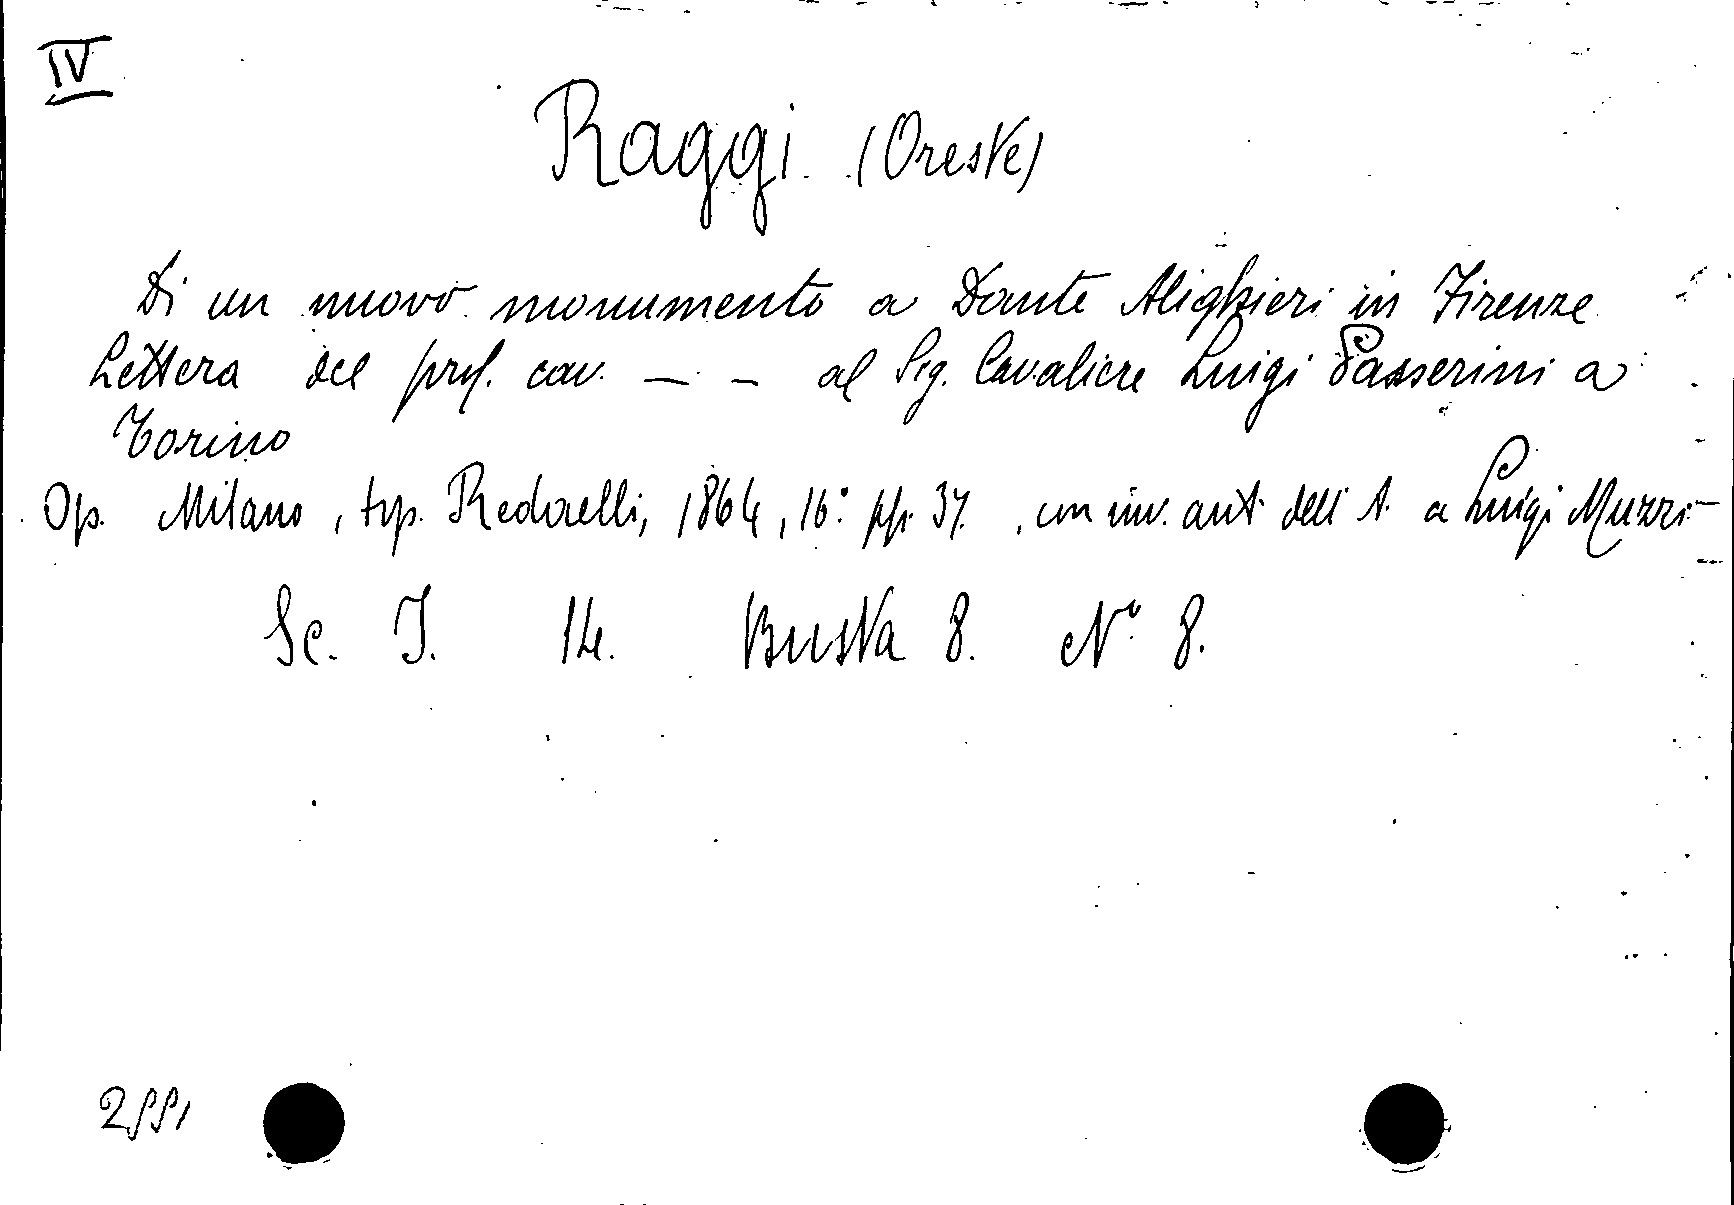 IV
Raggi (Oreste)
Di un nuovo monumento a Dante Alighieri in Firenze
Lettera del prof. cav. — — al Sig. Cavaliere Luigi Passerini a
Torino
Op. Milano, tip. Redaelli, 1864, 16° pp. 37. con inv. aut. dell'A. a Luigi Muzzi
Sc. I. 14. Busta 8. N° 8.